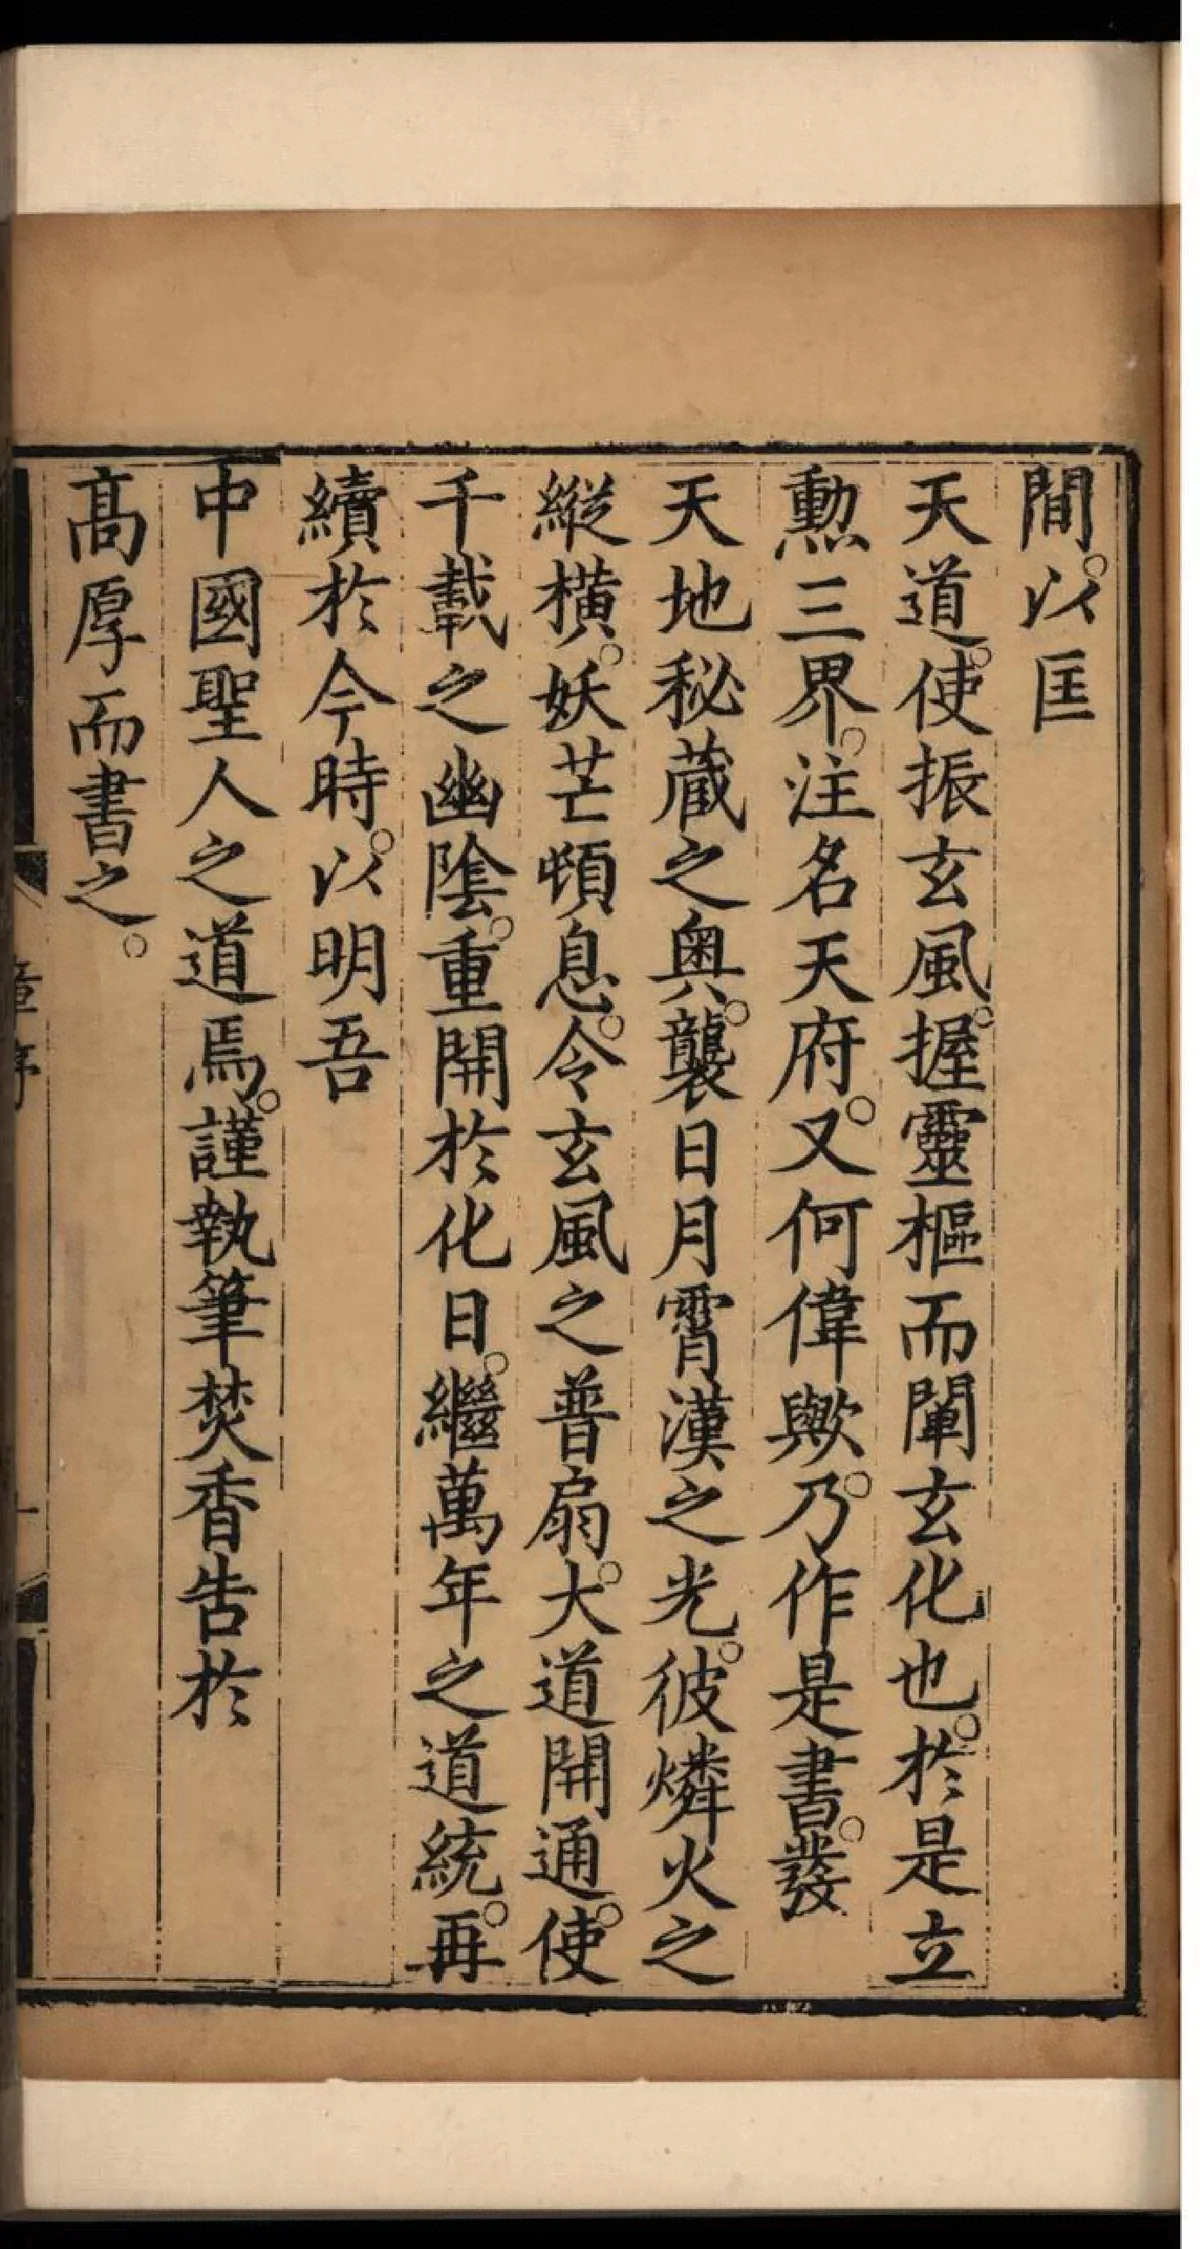 間。以匡
天道。使振玄風。握靈樞而闡玄化也。於是立
勲三界。注名天府。又何偉歟。乃作是書。發
天地秘藏之奥。襲日月霄漢之光。彼燐火之
縱横。妖芒頓息。令玄風之普扇。大道開通。使
千載之幽陰。重開於化日。繼萬年之道統。再
續於今時。以明吾
中國聖人之道焉。謹執筆焚香告於
髙厚而書之。